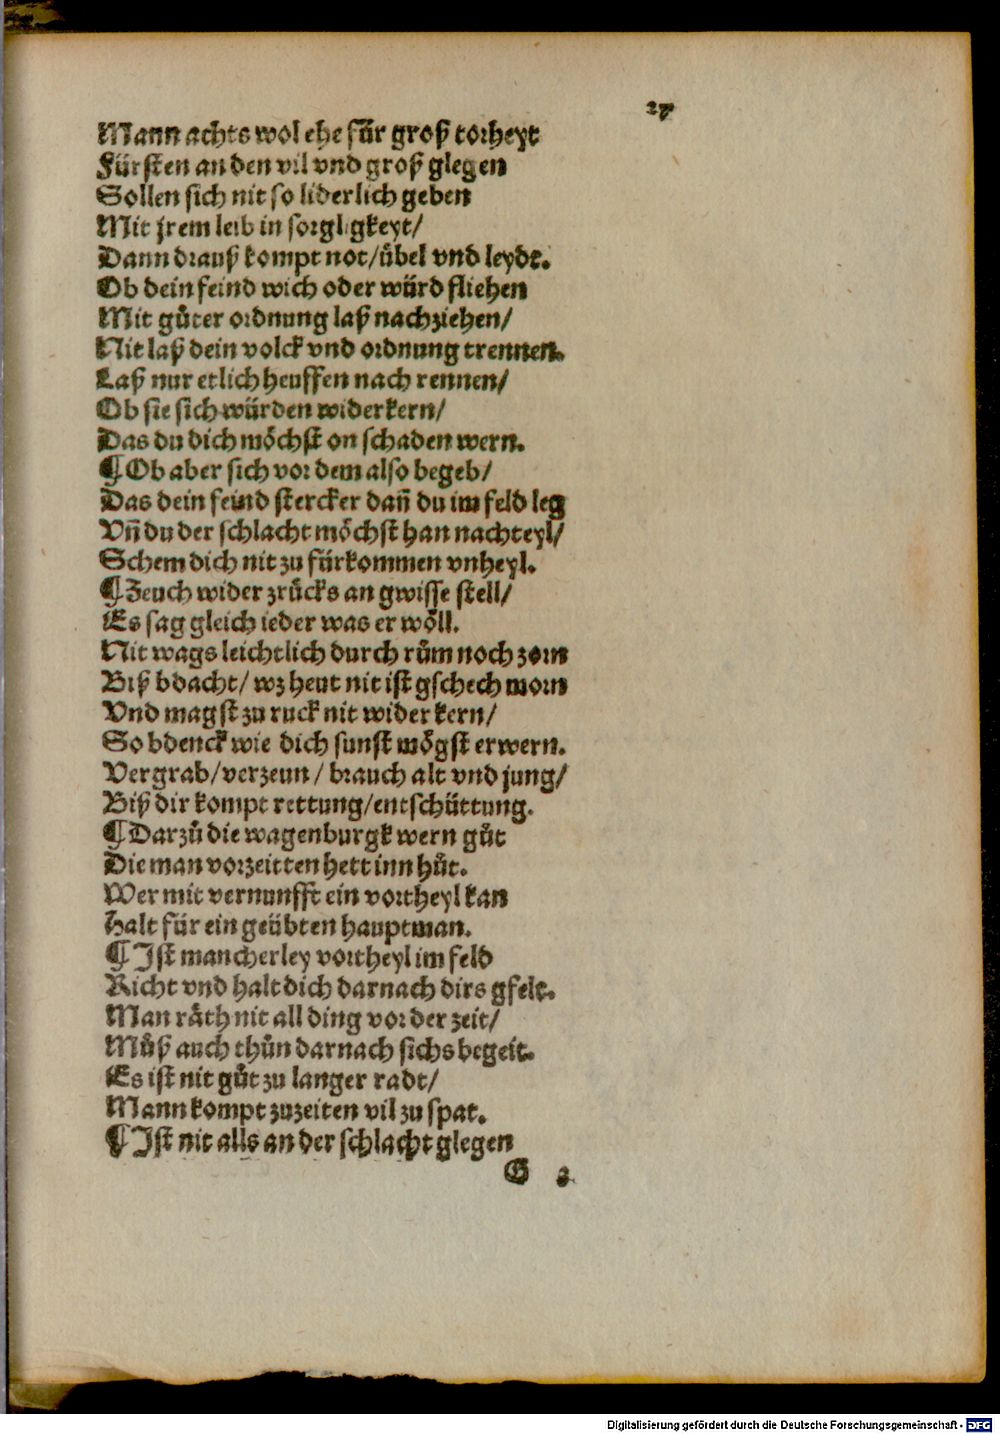 27
Mann achts wol ehe für groß torheyt
Fürsten an den vil vnd groß glegen
Sollen sich nit so liderlich geben
Mit jrem leib in sorgligkeyt/
Dann drauß kompt not/übel vnd leydt.
Ob dein feind wich oder würd fliehen
Mit gůter ordnung laß nachziehen/
Nit laß dein volck vnd ordnung trennen.
Laß nur etlich heuffen nach rennen/
Ob sie sich würden widerkern/
Das du dich möchst on schaden wern.
¶Ob aber sich vor dem also begeb/
Das dein feind stercker dañ du im feld leg
Vñ du der schlacht möchst han nachteyl/
Schem dich nit zu fürkommen vnheyl.
¶Zeuch wider zrůcks an gwisse stell/
Es sag gleich ieder was er wöll.
Nit wags leichtlich durch rům noch zorn
Biß bdacht/ wz heut nit ist gschech morn
Vnd magst zu ruck nit wider kern/
So bdenck wie dich sunst mögst erwern.
Vergrab/verzeun/ brauch alt vnd jung/
Biß dir kompt rettung/entschüttung.
¶Darzů die wagenburgk wern gůt
Die man vorzeitten hett inn hůt.
Wer mit vernunfft ein vortheyl kan
Halt für ein geübten hauptman.
¶Ist mancherley vortheyl im feld
Richt vnd halt dich darnach dirs gfelt.
Man räth nit all ding vor der zeit/
Můß auch thůn darnach sichs begeit.
Es ist nit gůt zu langer radt/
Mann kompt zuzeiten vil zu spat.
¶Ist nit alls an der schlacht glegen
G 3
Digitalisierung gefördert durch die Deutsche Forschungsgemeinschaft - DFG